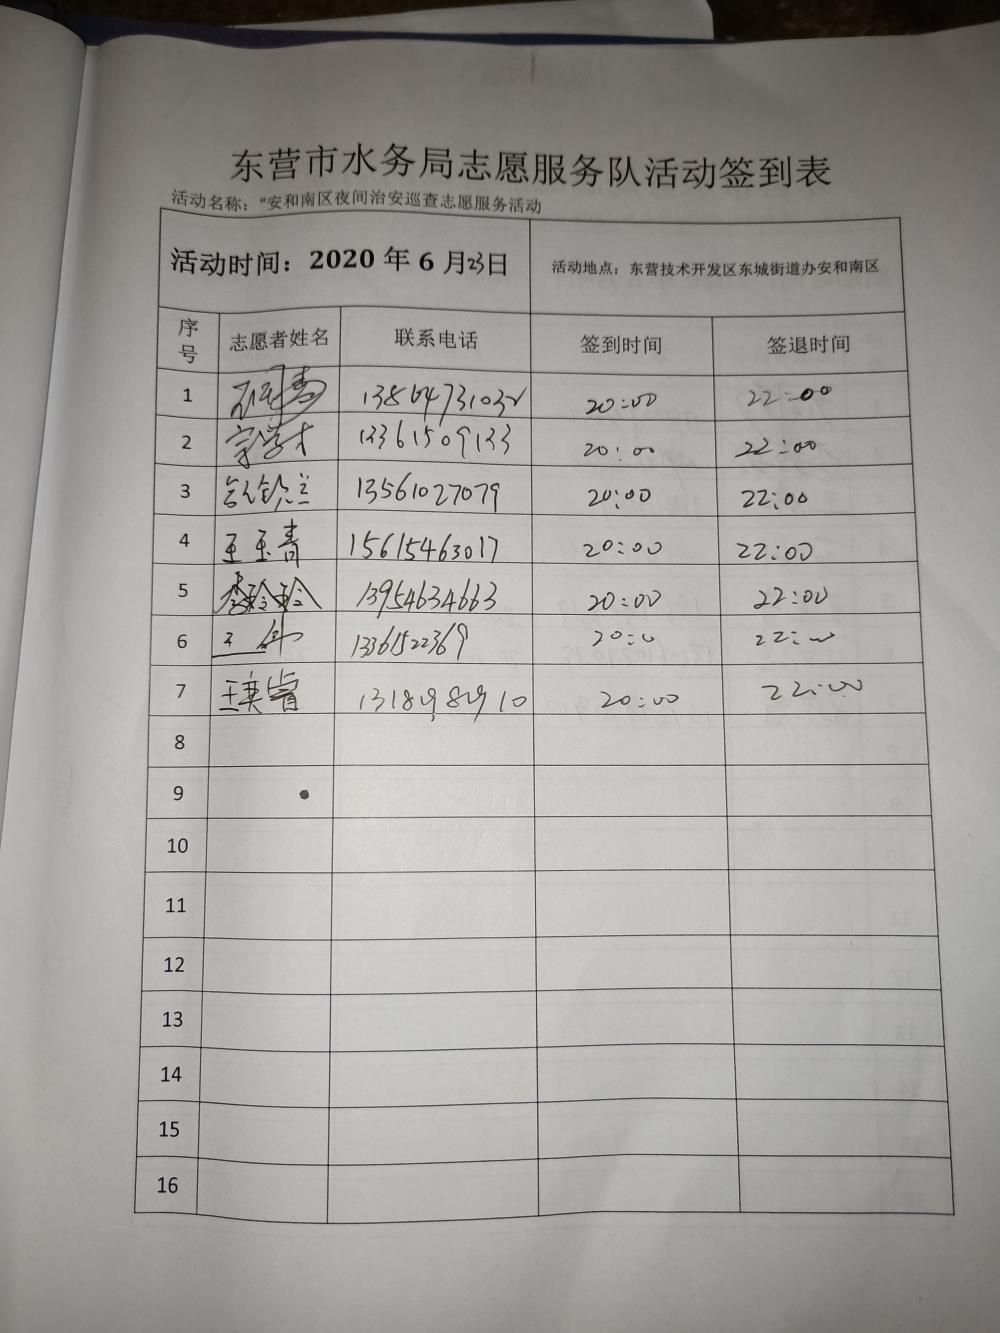 东营市水务局志愿服务队活动签到表
活动名称：“安和南区夜间治安巡查志愿服务活动
活动时间：2020 年 6 月23日 活动地点：东营技术开发区东城街道办安和南区
序号 志愿者姓名 联系电话 签到时间 签退时间
1 20:00 22:00
2 13361509133 20:00 22:00
3 13561027079 20:00 22:00
4 王玉青 15615463017 20:00 22:00
5 李玲玲 13954634663 20:00 22:00
6 13361522369 20:00 22:00
7 20:00 22:00
8
9
10
11
12
13
14
15
16